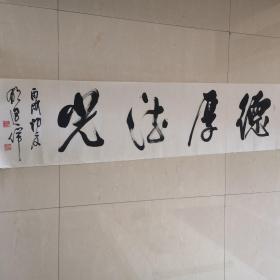 德厚流光
丙戌初夏